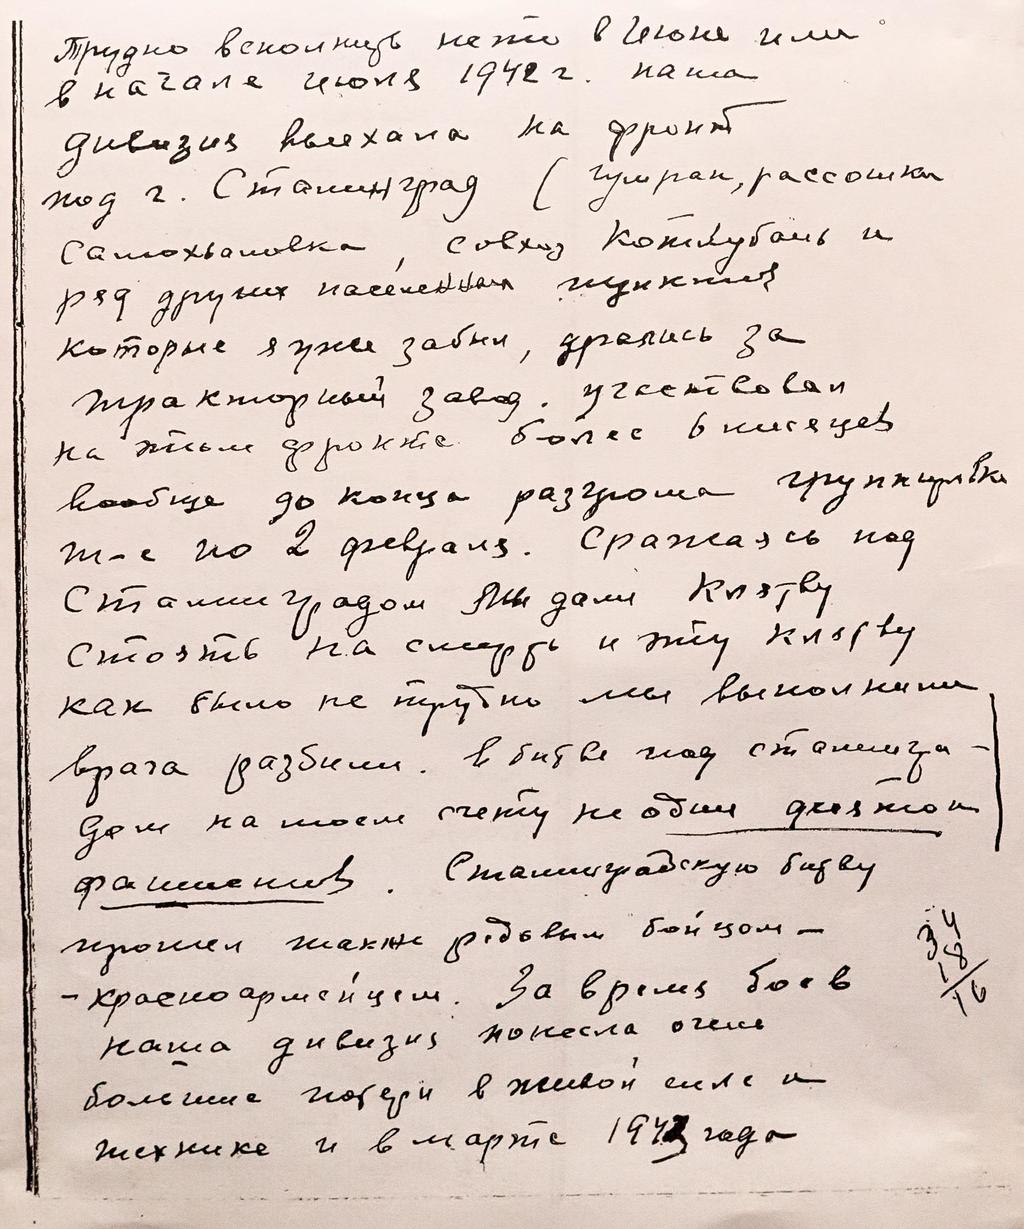 Трудно вспомнить не то в Июне или
в начале июля 1942 г. наша
дивизия выехала на фронт
под г. Сталинград ( гумрак, рассошки
самохваловка, совхоз Котлубань и
ряд других населенных пунктов
которые я уже забыл, дрались за
тракторный завод. участвовал
на этом фронте более 6 месяцев
вообще до конца разгрома группировки
т-е по 2 февраля. Сражаясь под
Сталинградом мы дали клятву
стоять на смерть и эту клятву
как было не трудно мы выполнили
врага разбили. в битве под сталингра-
дом на моем счету не один десяток
фашистов. Сталинградскую битву
прошел также рядовым бойцом-
-красноармейцем. За время боев
наша дивизия понесла очень
большие потери в живой силе и
технике и в марте 1943 года
34
18
16